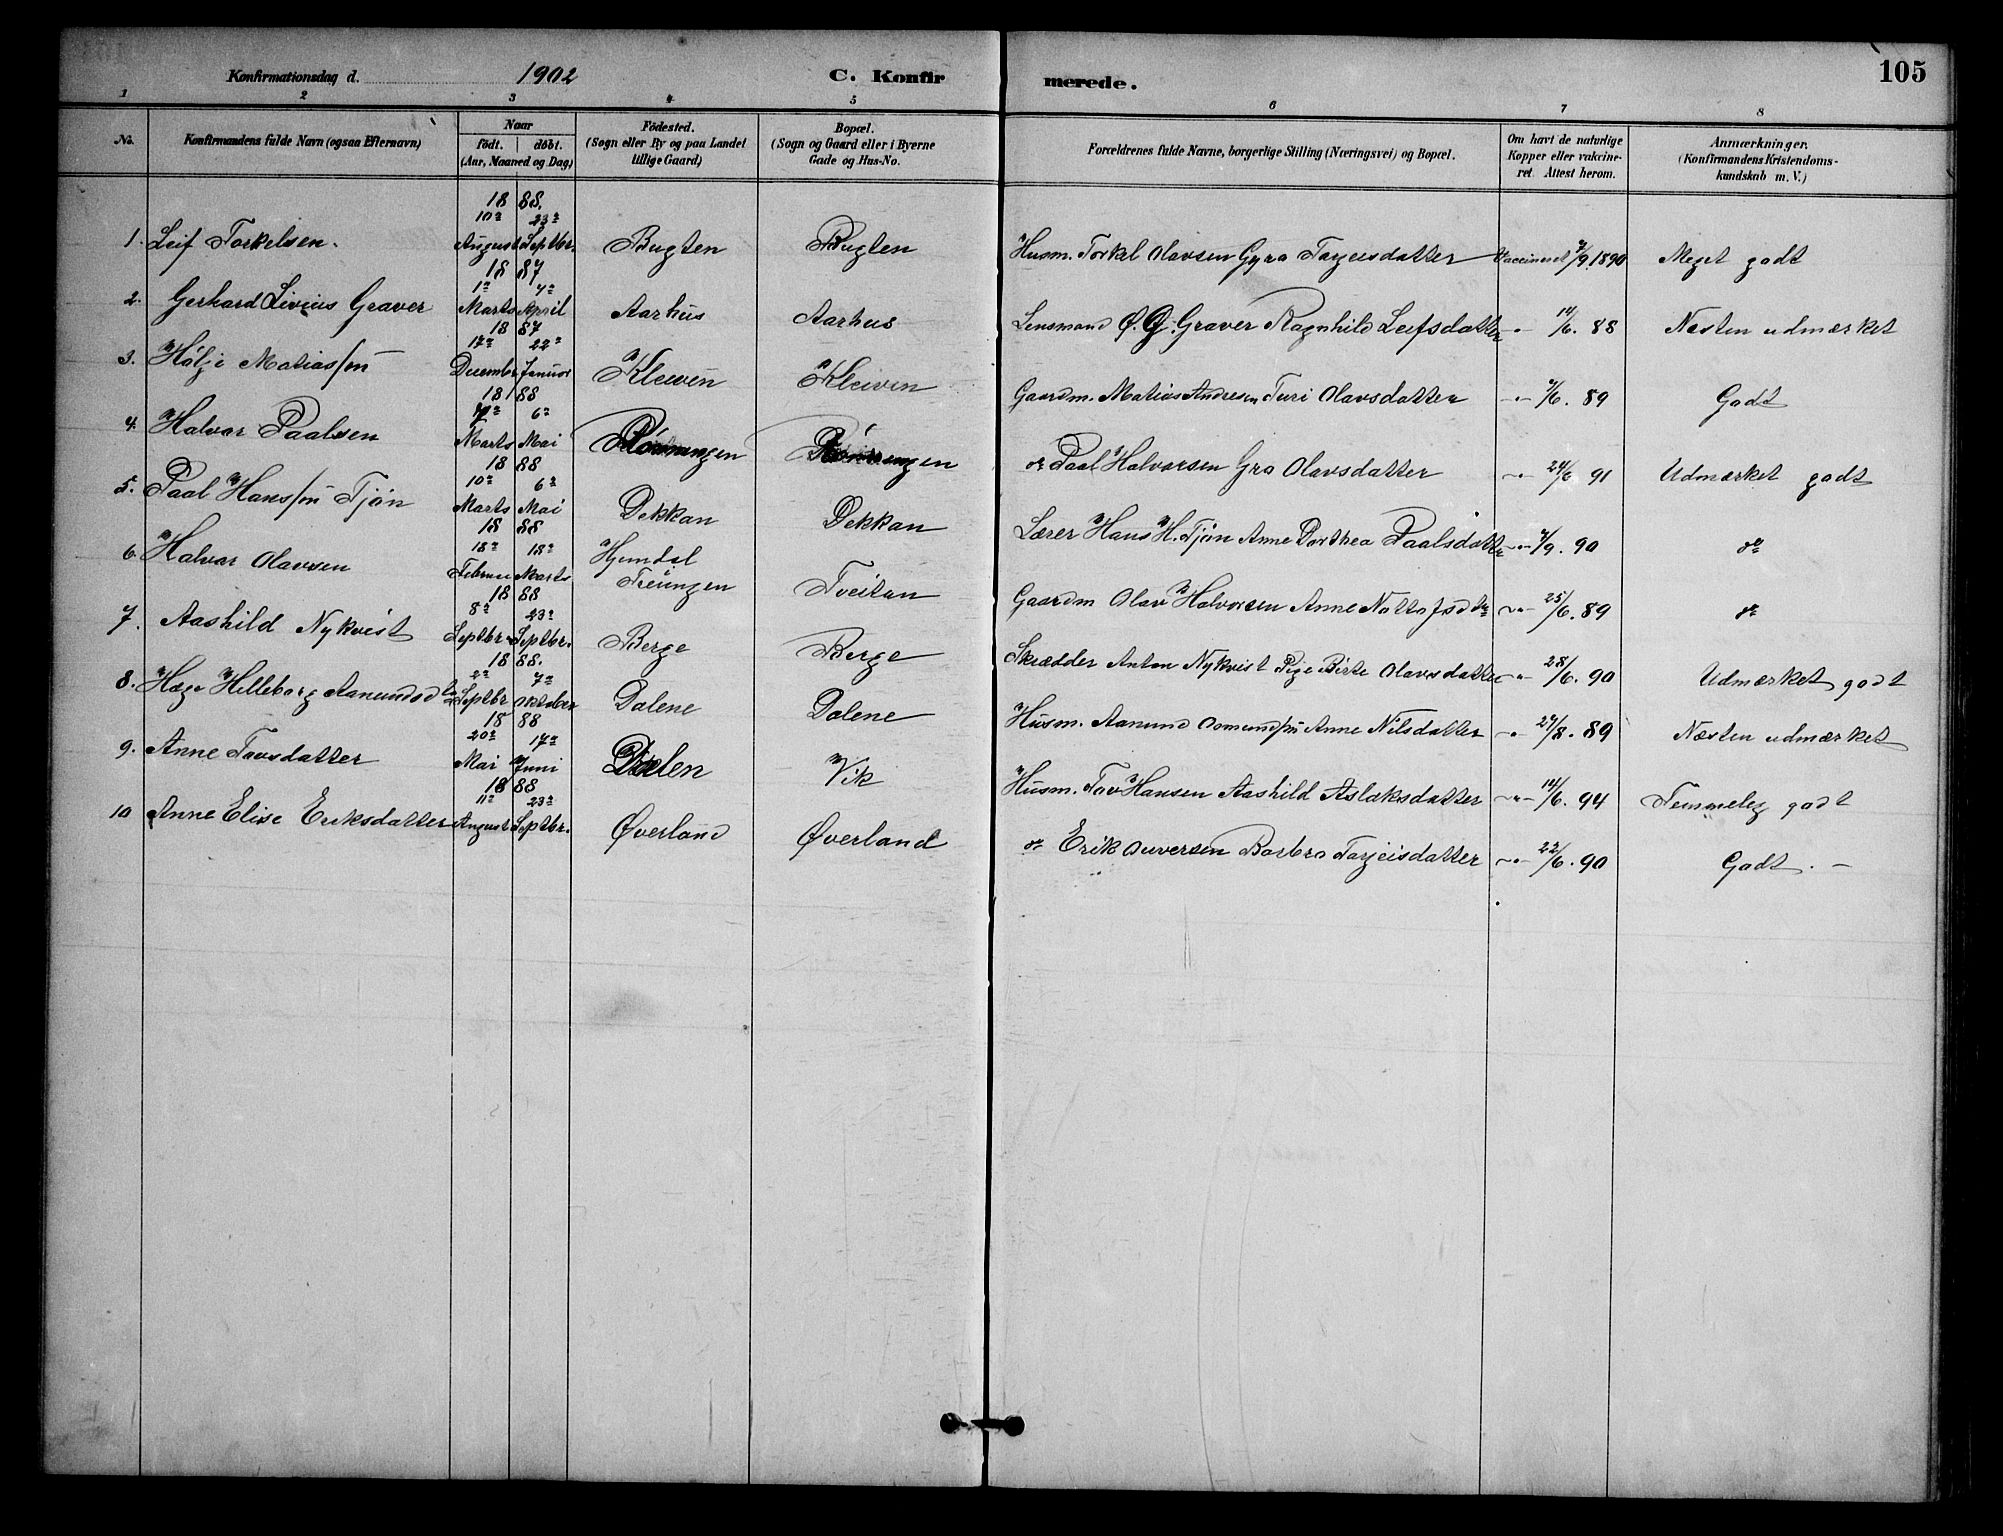 Konfirmationsdag d. 1902 C. Konfirmerede. 105
1 2 3 4 5 6 7 8
No. Konfirmandens fulde Navn (ogsaa Efternavn) Naar født. døbt. (Aar, Maaned og Dag) Fødested. (Sogn eller By og paa Landet tillige Gaard) Bopæl. (Sogn og Gaard eller i Byerne Gade og Hus-No. Forældrenes fulde Navne, borgerlige Stilling (Næringsvei) og Bopæl. Om havt de naturlige Kopper eller vakcineret. Attest herom. Anmærkninger. (Konfirmandens Kristendomskundskab m. V.)
1. Leif Torkelsen. 1888. 10de August 23de Septbr. Bugten Bugten Husm. Torkel Olavsen Gyro Tarjeisdatter Vaccineret 7/9.1890 Meget godt
2. Gerhard Livius Graver 1887 1de Marts 4de April Aarhus Aarhus Lensmand Ø. G. Graver Ragnhild Leifsdatter -"- 14/6. 88 Næsten udmærket
3. Hølje Matiassøn 1887 17de Decembr 22de Januar Kleiven Kleiven Gaardm. Matias Andresen Turi Olavsdatter -"- 9/6. 89 Godt
4. Halvor Paalsen 1888 Marts 6te Mai do Paal Halvorsen Gro Olavsdatter -"- 24/6 91 Udmærket godt
5. Paal Hanssøn Tjøn 1888 10de Marts 6te Mai Dekkan Dekkan Lærer Hans H. Tjøn Anne Dorthea Paalsdatter -"- 4/9. 90 do
6. Halvor Olavsen 1888 18de Februar 18de Marts Hjemdal Treungen Tveitan Gaardm Olav Halvorsen Anne Nottofsdtr -"- 25/6. 89 do
7. Aashild Nykvist 1888 8de Septbr. 23de Septbr. Berge Berge Skrædder Anton Nykvist Pige Birte Olavsdatter -"- 28/6. 90 Udmærket godt
8. Hæge Hilleborg Aanundsdtr 1888. 2de Septbr 7de Oktober Dalene Dalene Husm. Aanund Osmundsøn Anne Nilsdatter -"- 27/8. 89 Næsten udmærket
9. Anne Tovsdatter 1888 20de Mai 17de Juni Dalen Vik Husm. Tov Hansen Aashild Aslaksdatter -"- 14/6. 94 Temmelig godt
10 Anne Elise Eriksdatter 1888 11te August 23de Septbr. Øverland Øverland do Erik Auversen Barbro Tarjeisdatter -"- 22/6. 90 Godt. -